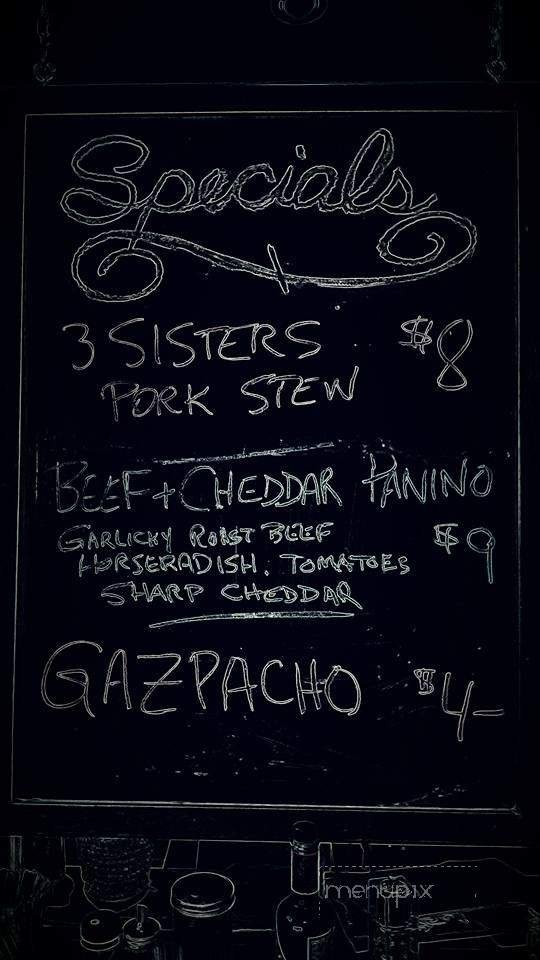 Specials
3 SISTERS $8
PORK STEW
BEEF + CHEDDAR PANINO
GARLICKY ROAST BEEF $9
HORSERADISH. TOMATOES
SHARP CHEDDAR
GAZPACHO $4-
menupix